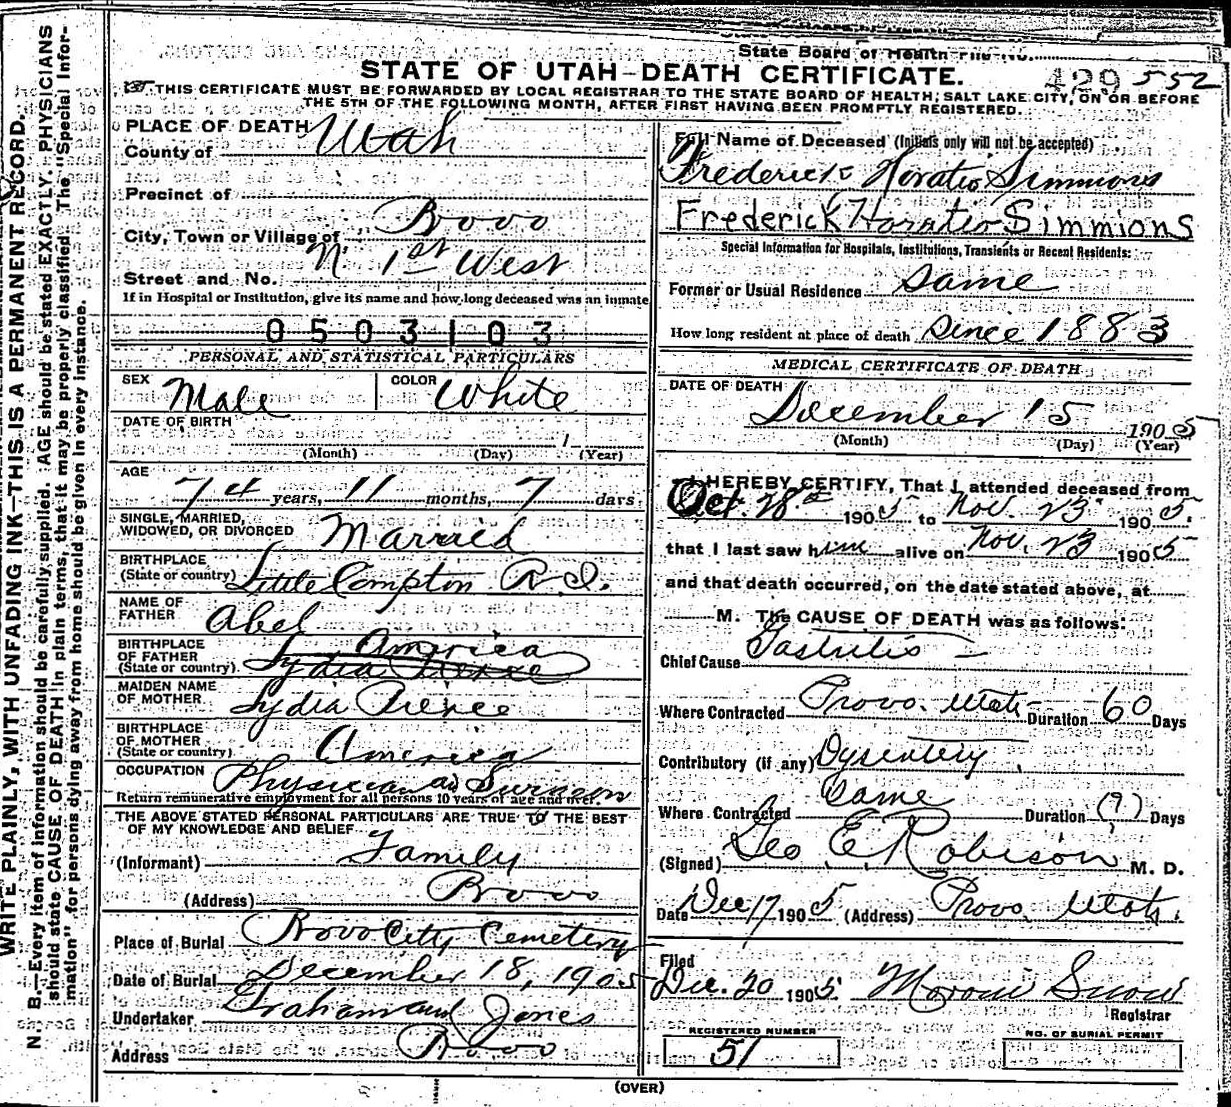 State Board of Health File No.
STATE OF UTAH—DEATH CERTIFICATE.
429 552
THIS CERTIFICATE MUST BE FORWARDED BY LOCAL REGISTRAR TO THE STATE BOARD OF HEALTH, SALT LAKE CITY, ON OR BEFORE
THE 5TH OF THE FOLLOWING MONTH, AFTER FIRST HAVING BEEN PROMPTLY REGISTERED.
WRITE PLAINLY, WITH UNFADING INK—THIS IS A PERMANENT RECORD.
N. B.—Every item of information should be carefully supplied. AGE should be stated EXACTLY. PHYSICIANS
should state CAUSE OF DEATH in plain terms, that it may be properly classified. The "Special Infor-
mation" for persons dying away from home should be given in every instance.
PLACE OF DEATH
County of Utah
Precinct of
City, Town or Village of Provo
Street and No. N. 1st West
If in Hospital or Institution, give its name and how long deceased was an inmate
0503103
PERSONAL AND STATISTICAL PARTICULARS
SEX Male COLOR White
DATE OF BIRTH
(Month) (Day) (Year)
AGE
74 years, 11 months, 7 days
SINGLE, MARRIED,
WIDOWED, OR DIVORCED Married
BIRTHPLACE
(State or country) Little Compton R. I.
NAME OF
FATHER Abel
BIRTHPLACE
OF FATHER America
(State or country) Lydia Pierce
MAIDEN NAME
OF MOTHER Lydia Pierce
BIRTHPLACE
OF MOTHER
(State or country) America
OCCUPATION Physician and Surgeon
Return remunerative employment for all persons 10 years of age and over.
THE ABOVE STATED PERSONAL PARTICULARS ARE TRUE TO THE BEST
OF MY KNOWLEDGE AND BELIEF
(Informant) Family
(Address) Provo
Place of Burial Provo City Cemetery
Date of Burial December 18, 1905
Undertaker Graham and Jones
Address Provo
Full Name of Deceased (Initials only will not be accepted)
Frederick Horatio Simmons
Frederick Horatio Simmions
Special Information for Hospitals, Institutions, Transients or Recent Residents:
Former or Usual Residence Same
How long resident at place of death Since 1883
MEDICAL CERTIFICATE OF DEATH
DATE OF DEATH
December 15 1905
(Month) (Day) (Year)
I HEREBY CERTIFY, That I attended deceased from
Oct. 28th 1905 to Nov. 23 1905.
that I last saw him alive on Nov. 23 1905
and that death occurred, on the date stated above, at
M. The CAUSE OF DEATH was as follows:
Chief Cause Gastritis
Where Contracted Provo. Utah Duration 60 Days
Contributory (if any) Dysentery
Where Contracted Same Duration (?) Days
(Signed) Geo E Robison M. D.
Date Dec 17 1905 (Address) Provo Utah.
Filed
Dec. 20 1905. Moroni Snow
Registrar
REGISTERED NUMBER NO. OF BURIAL PERMIT
51
(OVER)